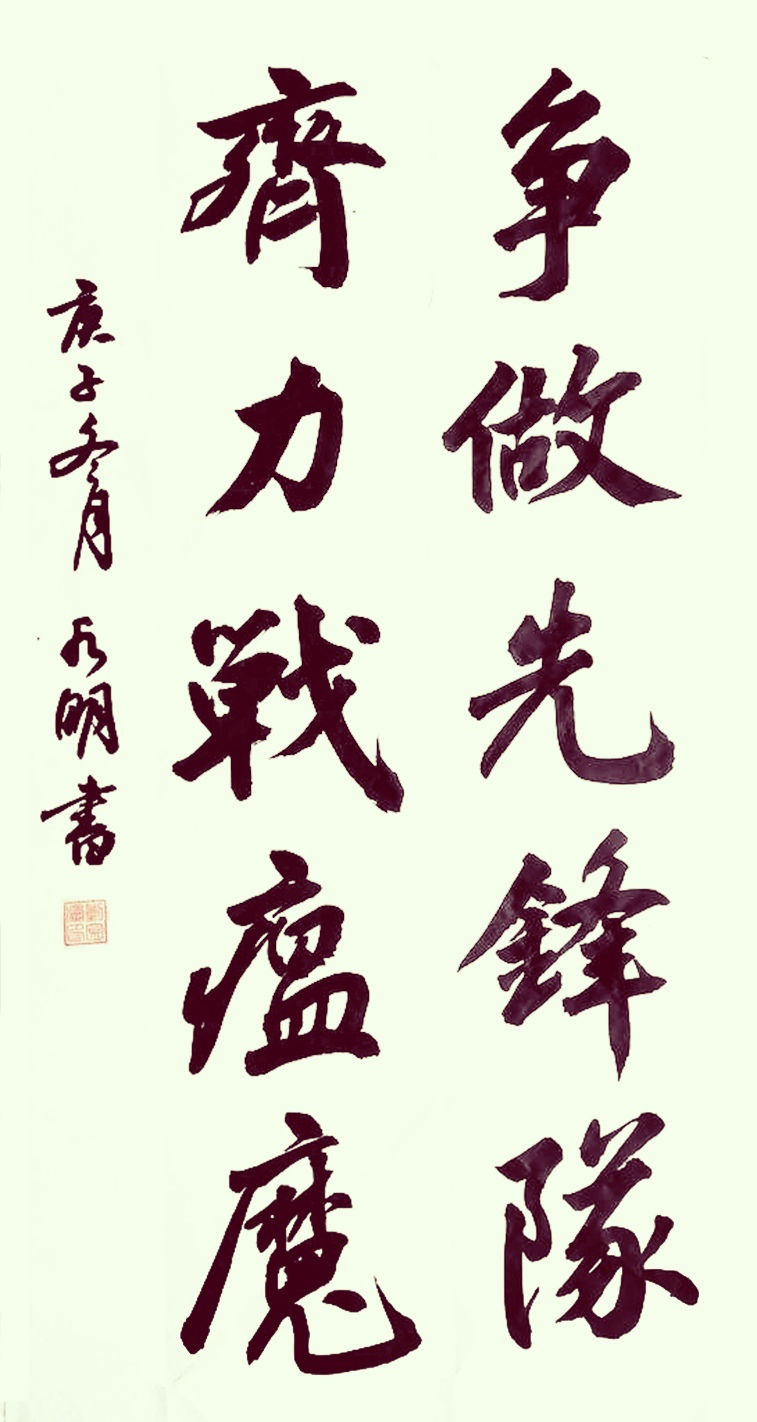 争做先鋒隊
齊力戰瘟魔
庚子冬月
明書